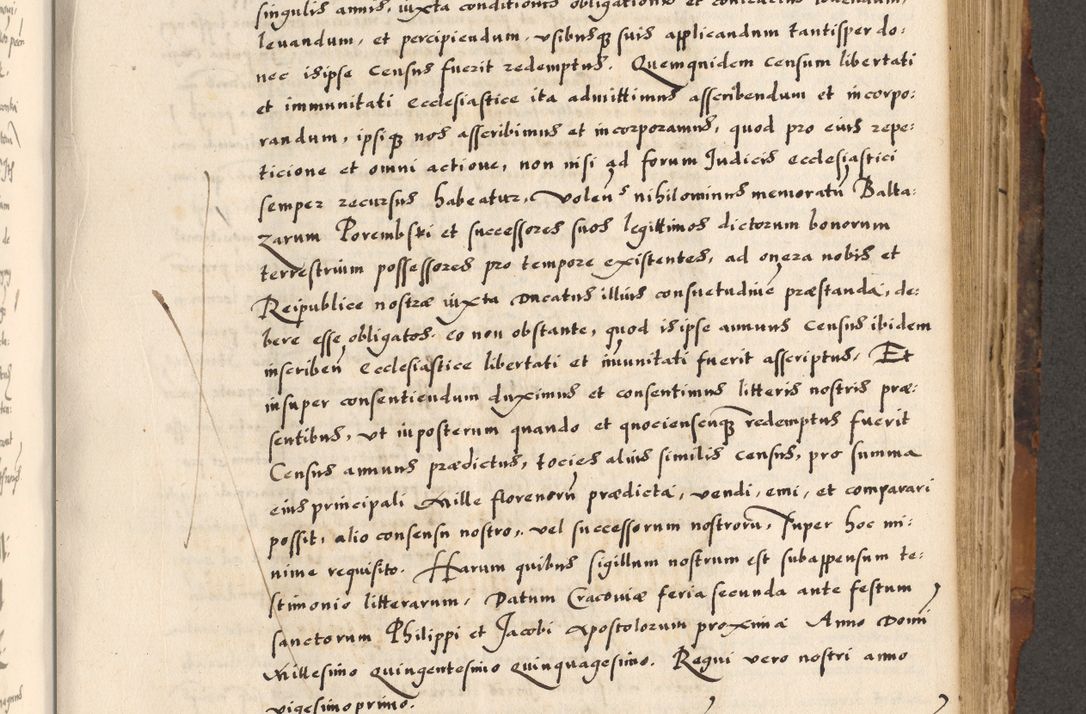 singulis annis, iuxta conditiones obligationis et contractus
leuandum, et percipiendum, vsibusq₃ suis applicandum tantisper do:
nec is ipse Census fuerit redemptus. Quemquidem Censum libertati
et immunitati Ecclesiastice ita admittimus asscribendum et incorpo:
randum, ipsiq₃ nos asscribimus et incorporamus, quod pro eius repe:
ticione et omni actione, non nisi ad forum Judicis ecclesiastici
semper recursus habeatur. Volens nihilominus memoratū Balta:
zarum Porembski et successores suos legittimos dictorum bonorum
terrestrium possessores pro tempore existentes, ad onera nobis et
Reipublice nostræ iuxta Ducatus illius consuetudinē præstanda, de:
bere esse obligatos. eo non obstante, quod is ipse annuus Census ibidem
inscribeñ Ecclesiastice libertati et im̄unitati fuerit asscriptus. Et
insuper consentiendum duximus et consentimus litteris nostris præ:
sentibus, vt inposterum quando et quociensenq₃ redemptus fuerit
Census annuus prædictus, tocies alius similis Census, pro summa
eius principali Mille florenorū prædicta, vendi, emi, et comparari
possit, alio consensu nostro, vel successorum nostrorū, super hoc mi:
nime requisito. Harum quibus sigillum nostrum est subappensum te:
stimonio litterarum. Datum Cracoviæ feria secunda ante festum
sanctorum Philippi et Jacobi Apostolorum proxima Anno Domi
Millesimo Quingentesimo Quinquagesimo. Regni vero nostri anno
vigesimoprimo.